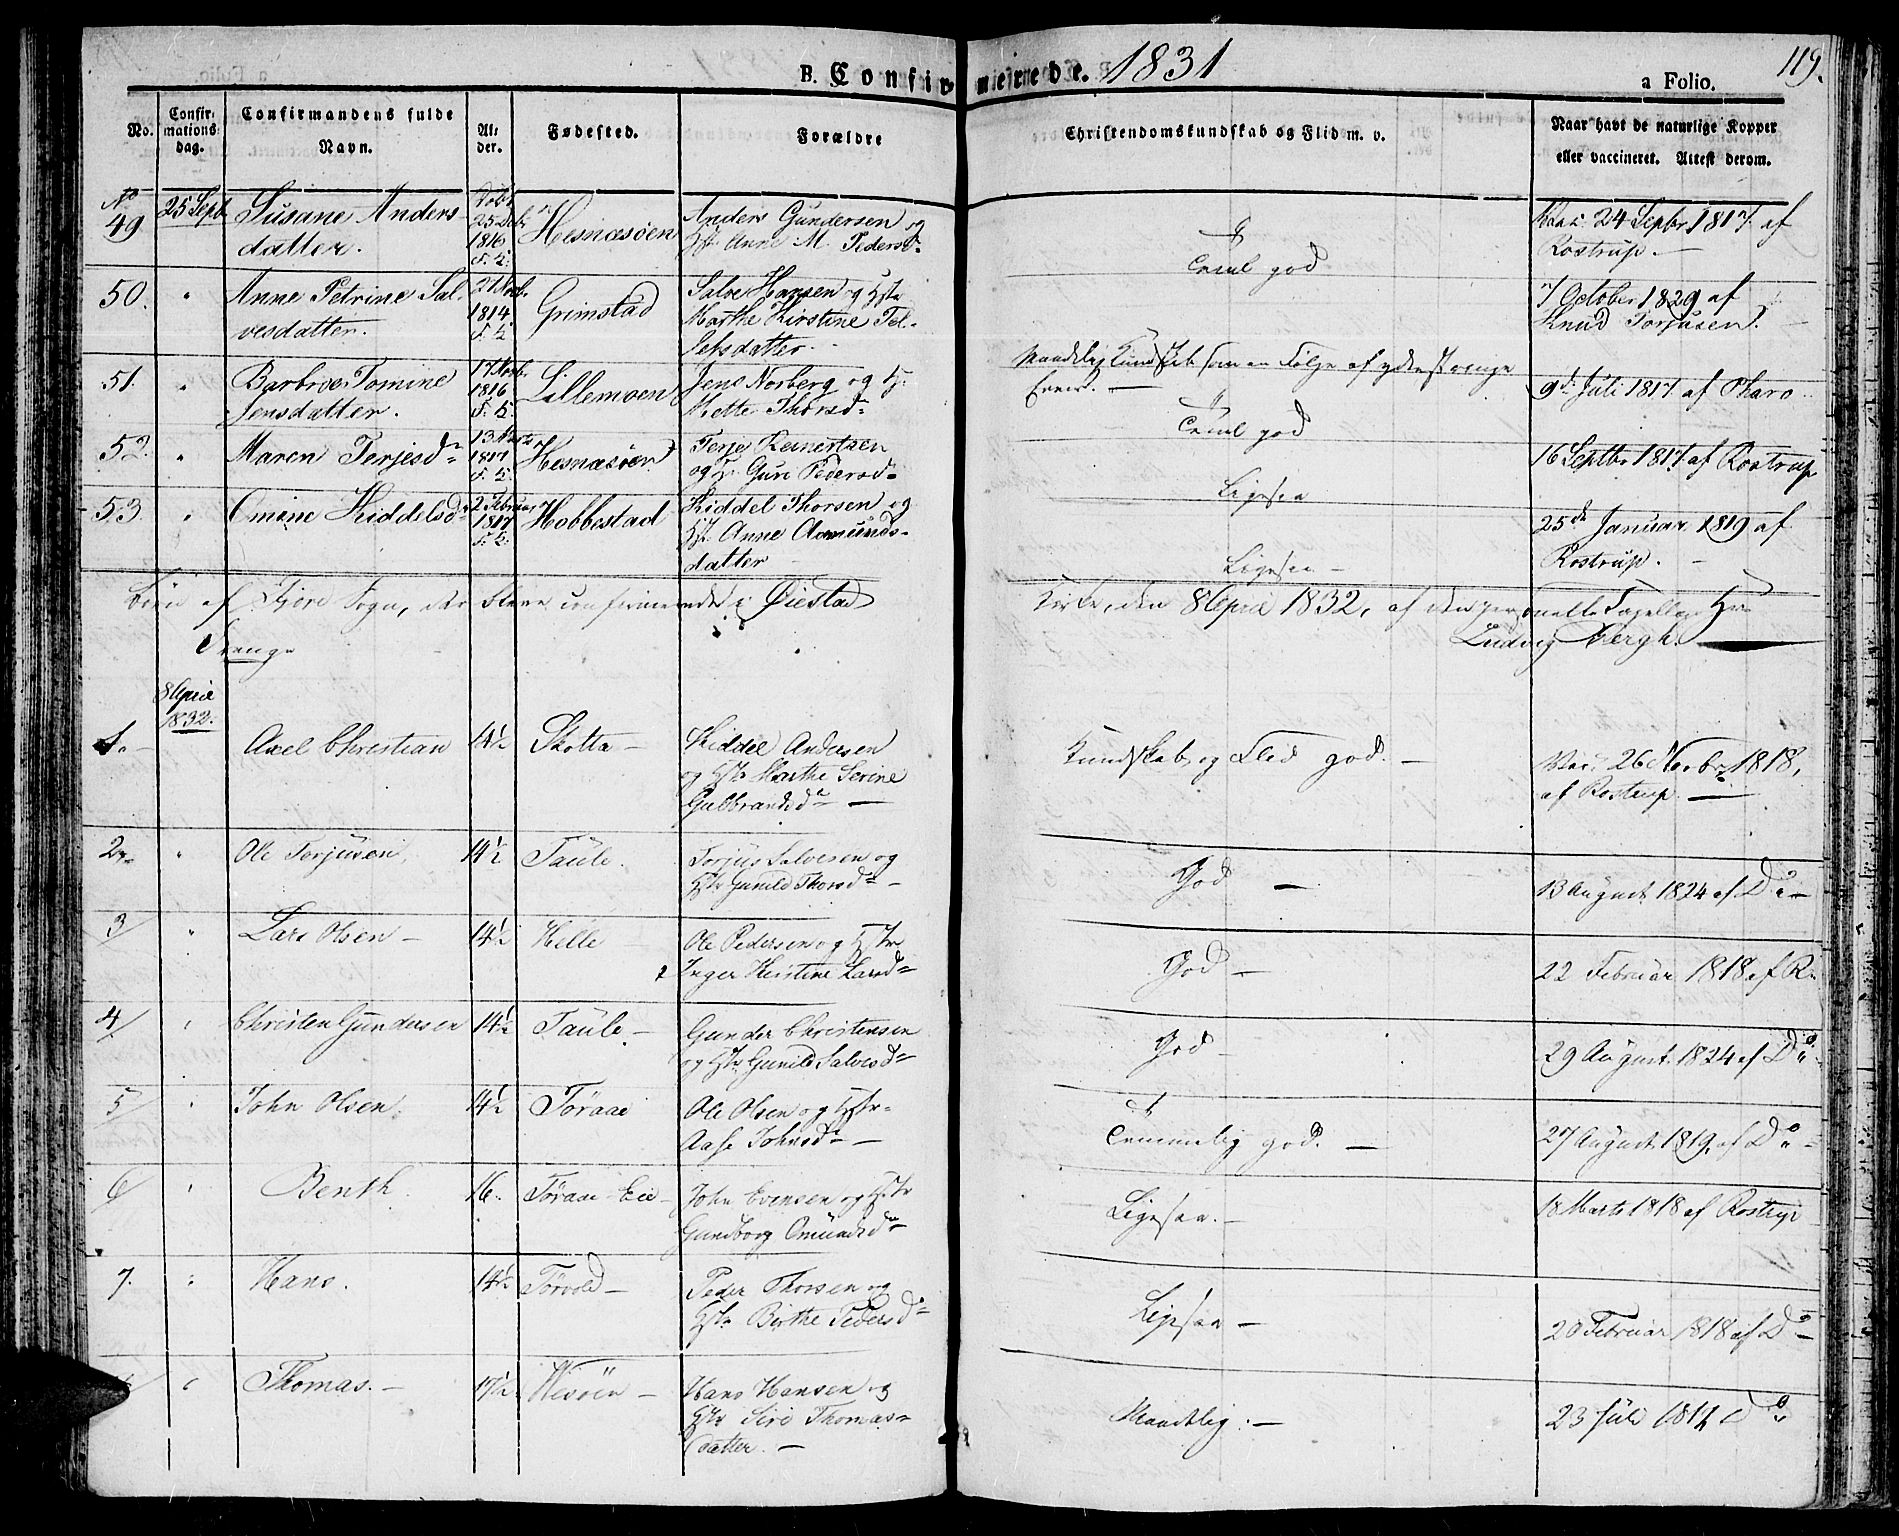 B. Confirmerede. 1831
a Folio.
119.
No.
Confir-
mations-
dag.
Confirmandens fulde
Navn.
Al-
der.
Fødested.
Forældre
Christendomskundskab og Flid m. v.
Naar havt de naturlige Kopper
eller vaccineret. Attest derom.
No
49
25 Sept
Susane Anders
datter.
født
25 Dec
1816
Hesnæsöen
Anders Gundersen og
Hst. Anne M. Pedersd.
god
Vac. 24 Septbr 1817 af
Rostrup.
50.
"
Anne Petrine Sal-
vesdatter.
21 Novb.
1814
Grimstad
Salve Hansen og Hstr
Marthe Kirstine Tel-
lefsdatter
7 October 1829 af
Knud Torjusen.
51.
"
Barbroe Tomine
Jensdatter.
17 Novb.
1816
Lillemoen
Jens Norberg og H.
Mette Thorsd.
Maadelig Kundskab som en Følge af yderst ringe
Evner.
9d Juli 1817. af Pharo
52.
"
Maren Terjesd
1817
Hesnæsöen
Terje Reinertsen
og H. Guri Pedersd.
god
16 Septbr 1817 af Rostrup
53.
"
Omine Kiddelsd
2 Februar
1817
Hobbestad
Kiddel Thorsen og
Hst. Anne Aamunds-
datter
Ligesaa
25de Januar 1819 af
Rostrup.
Ligesaa
Børn af Fjære Sogn, der bleve confirmerede i Øiestad
Kirke, den 8 April 1832, af den personelle Capellan Hr
Ludvig Bergh.
Drenge
8 April
1832.
1.
Axel Christian
14½
Skotta
Kiddel Andersen
og Hstr Marthe Serine
Gulbrandsd.
Kundskab og Flid god.
Vac. 26 Novbr 1818,
af Rostrup.
2.
"
Ole Torjusen
14½
Taule.
Torjus Salvesen og
Hstr Gunild Thorsd.
God
13 August 1824 af Do
3
"
Lars Olsen
14½
Helle
Ole Pedersen og Hstr
Inger Kirstine Larsd.
God
22 Februar 1818 af R.
4
"
Christen Gundersen
14½
Taule
Gunder Christensen
og Hstr Gunild Salvesd.
God
29 August 1824 af Do
5
"
John Olsen.
14½
Töraae
Ole Olsen og Hstr.
Aase Johnsd.
Temmelig god.
27 August 1819. af Do
6
"
Benth
16.
Töraae Eie
John Evensen og Hstr
Gundborg Omundsd.
Ligesaa.
18 Marts 1818 af Rostrup
7.
"
Hans.
14½
Törvold
Peder Thorsen og
Hstr. Birthe Pedersd.
Ligesaa
20 Februar 1818 af Do
"
Thomas.
17½
Hesöen
Hans Hansen og
Hstr Siri Thomas-
datter.
Maadelig.
23 Juli 1817 Do